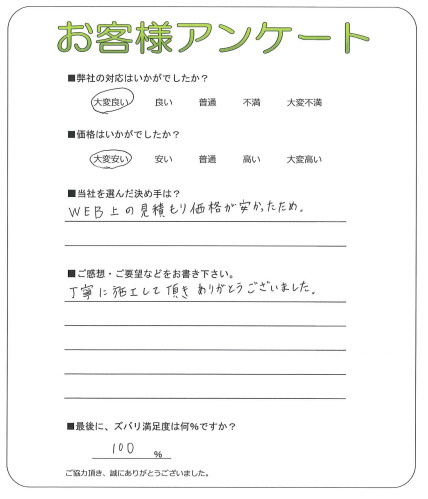 お客様アンケート
■弊社の対応はいかがでしたか？
大変良い 良い 普通 不満 大変不満
■価格はいかがでしたか？
大変安い 安い 普通 高い 大変高い
■当社を選んだ決め手は？
WEB上の見積もり価格が安かったため。
■ご感想・ご要望などをお書き下さい。
丁寧に施工して頂きありがとうございました。
■最後に、ズバリ満足度は何％ですか？
100 ％
ご協力頂き、誠にありがとうございました。